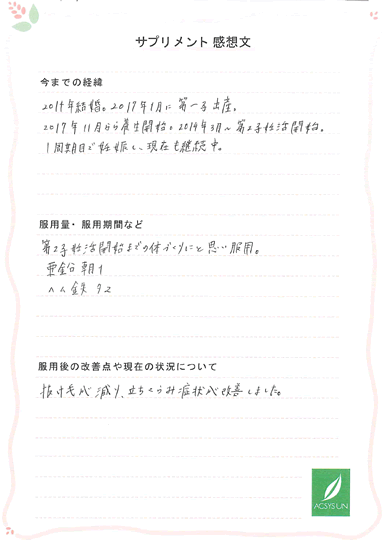 サプリメント 感想文
今までの経緯
2014年結婚。2017年1月に第一子出産。
2017年11月から養生開始。2019年3月〜第2子妊活開始。
1周期目で妊娠し、現在も継続中。
服用量・服用期間など
第2子妊活開始までの体づくりにと思い服用。
亜鉛 朝1
ヘム鉄 夕2
服用後の改善点や現在の状況について
抜け毛が減り、立ちくらみ症状が改善しました。
ACSYSUN